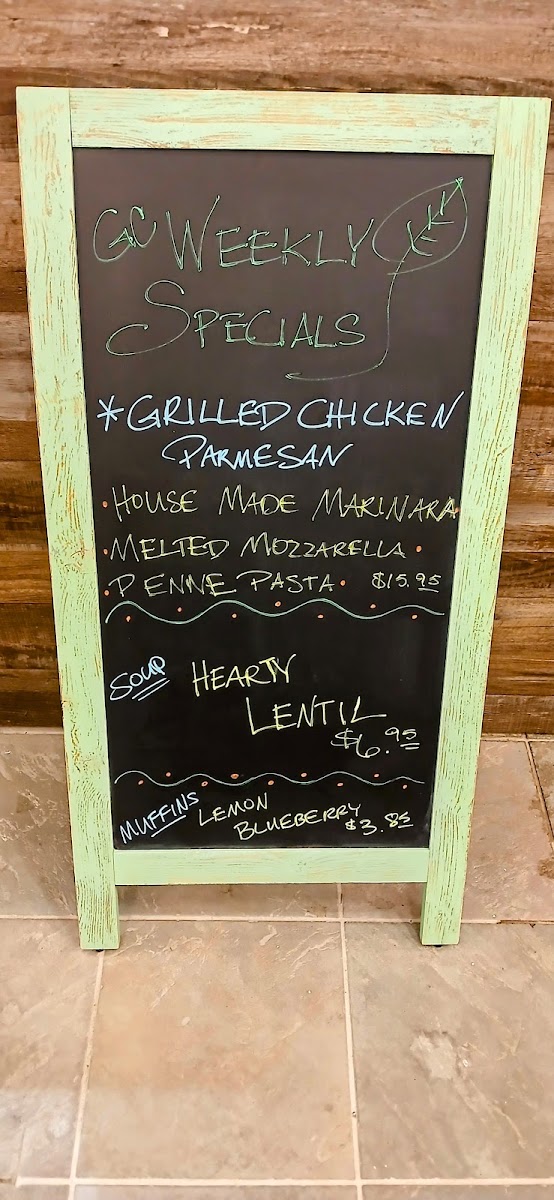 GC WEEKLY
SPECIALS
*GRILLED CHICKEN
PARMESAN
• HOUSE MADE MARINARA •
• MELTED MOZZARELLA •
• PENNE PASTA • $15.95
SOUP HEARTY
LENTIL
$6.95
MUFFINS LEMON
BLUEBERRY $3.85